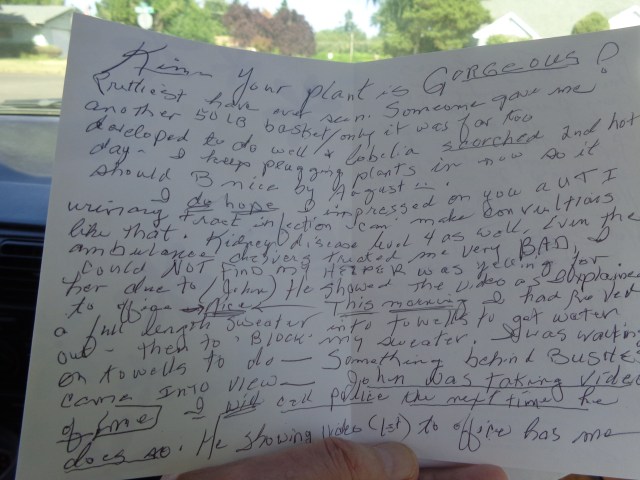 Kim your plant is GORGEOUS!
Prettiest have ever seen. Someone gave me
another 50 LB basket/only it was far too
developed to do well & lobelia skorched 2nd hot
day - I keep plugging plants in now so it
should B nice by August
I do hope I impressed on you a UTI
urinary tract infection can make convultions
like that. Kidney disease level 4 as well. Even the
ambulance drivers treated me very BAD, I
could NOT FIND my HELPER was yelling for
her due to (John) He showed the video as explained
to office - Nice - This morning I had
a full length sweater into towells to get water
out - then to "BLOCK" my sweater. I was waiting
on towells to do - Something behind BUSHES
came INTO VIEW - John was taking video
of me I will call police the next time he
does so. He showing video (1st) to office has me